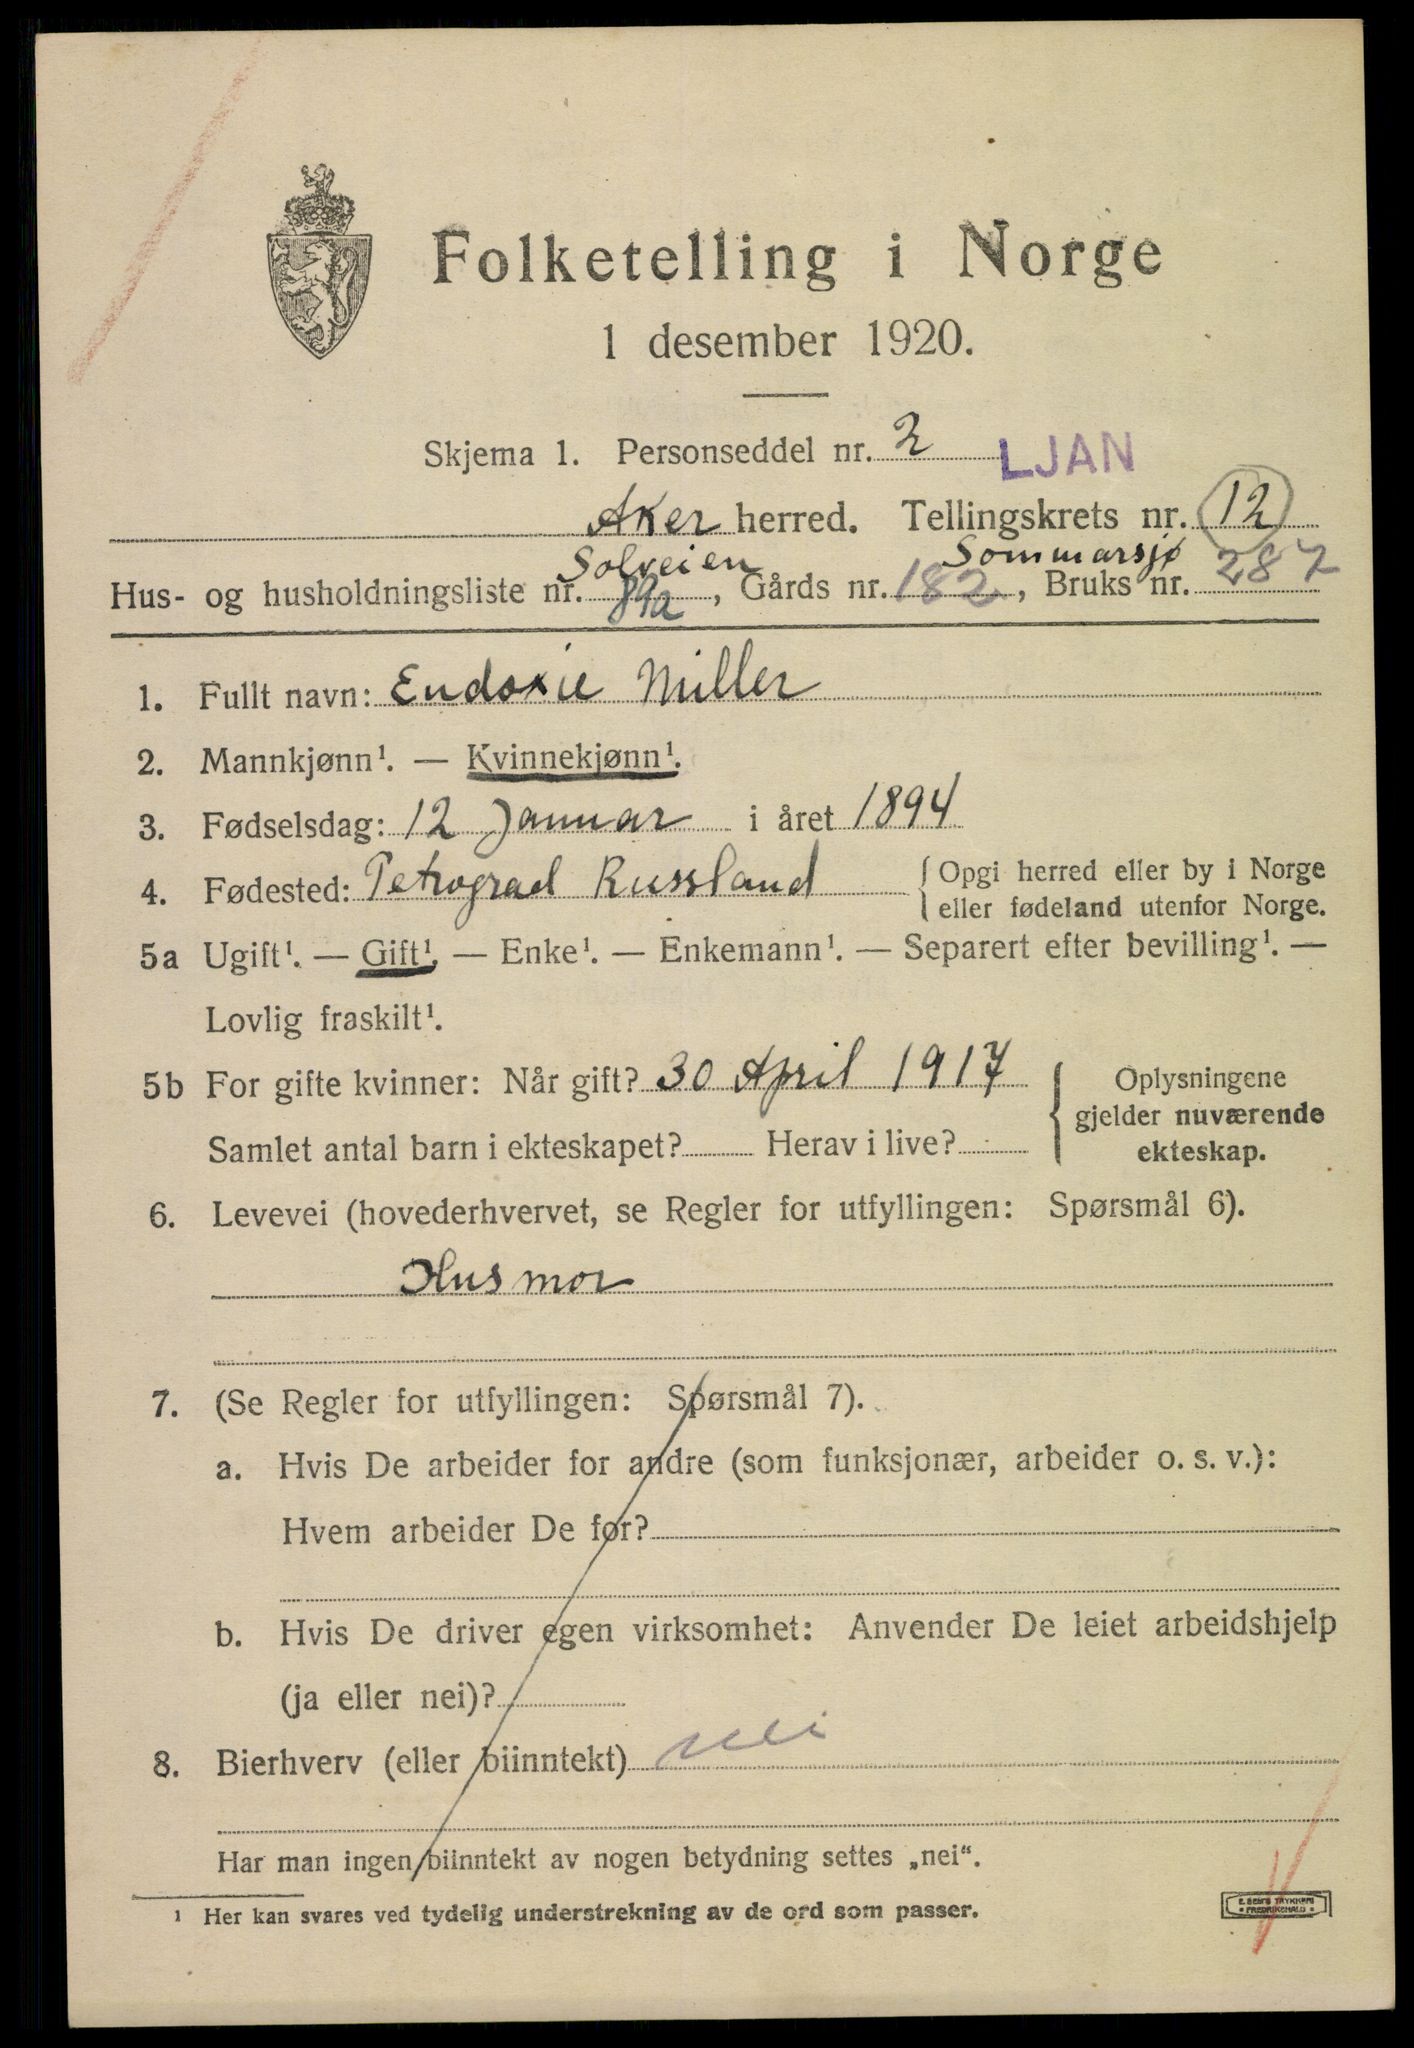 Folketelling i Norge
1 desember 1920.
Skjema 1. Personseddel nr. 2 LJAN
Aker herred. Tellingskrets nr. 12
Solveien Sommarsjø
Hus- og husholdningsliste nr. 89a, Gårds nr. 182, Bruks nr. 287
1. Fullt navn: Eudoxie Miller
2. Mannkjønn¹. — Kvinnekjønn¹.
3. Fødselsdag: 12 Januar i året 1894
4. Fødested: Petrograd Russland { Opgi herred eller by i Norge
eller fødeland utenfor Norge.
5a Ugift¹. — Gift¹. — Enke¹. — Enkemann¹. — Separert efter bevilling¹. —
Lovlig fraskilt¹.
5b For gifte kvinner: Når gift? 30 April 1917 { Oplysningene
gjelder nuværende
Samlet antal barn i ekteskapet? Herav i live? ekteskap.
6. Levevei (hovederhvervet, se Regler for utfyllingen: Spørsmål 6).
Husmor
7. (Se Regler for utfyllingen: Spørsmål 7).
a. Hvis De arbeider for andre (som funksjonær, arbeider o. s. v.):
Hvem arbeider De for?
b. Hvis De driver egen virksomhet: Anvender De leiet arbeidshjelp
(ja eller nei)?
8. Bierhverv (eller biinntekt) nei
Har man ingen biinntekt av nogen betydning settes „nei“.
¹ Her kan svares ved tydelig understrekning av de ord som passer.
E. SEMS TRYKKERI
FREDRIKSHALD